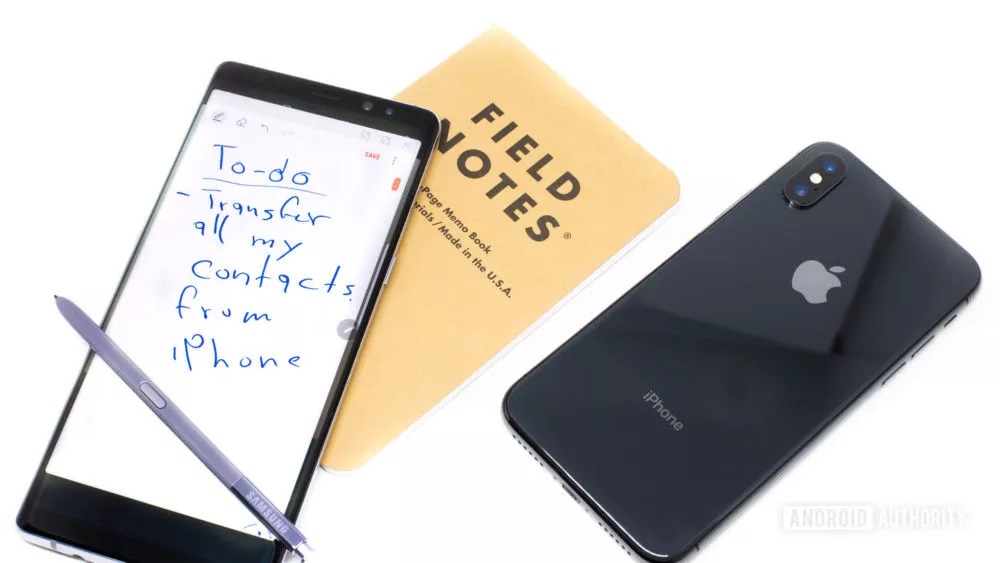 SAVE
To-do
- Transfer
all my
contacts.
from
iPhone
SAMSUNG
FIELD
NOTES®
Page Memo Book
rials / Made in the U.S.A.
iPhone
ANDROID AUTHORITY